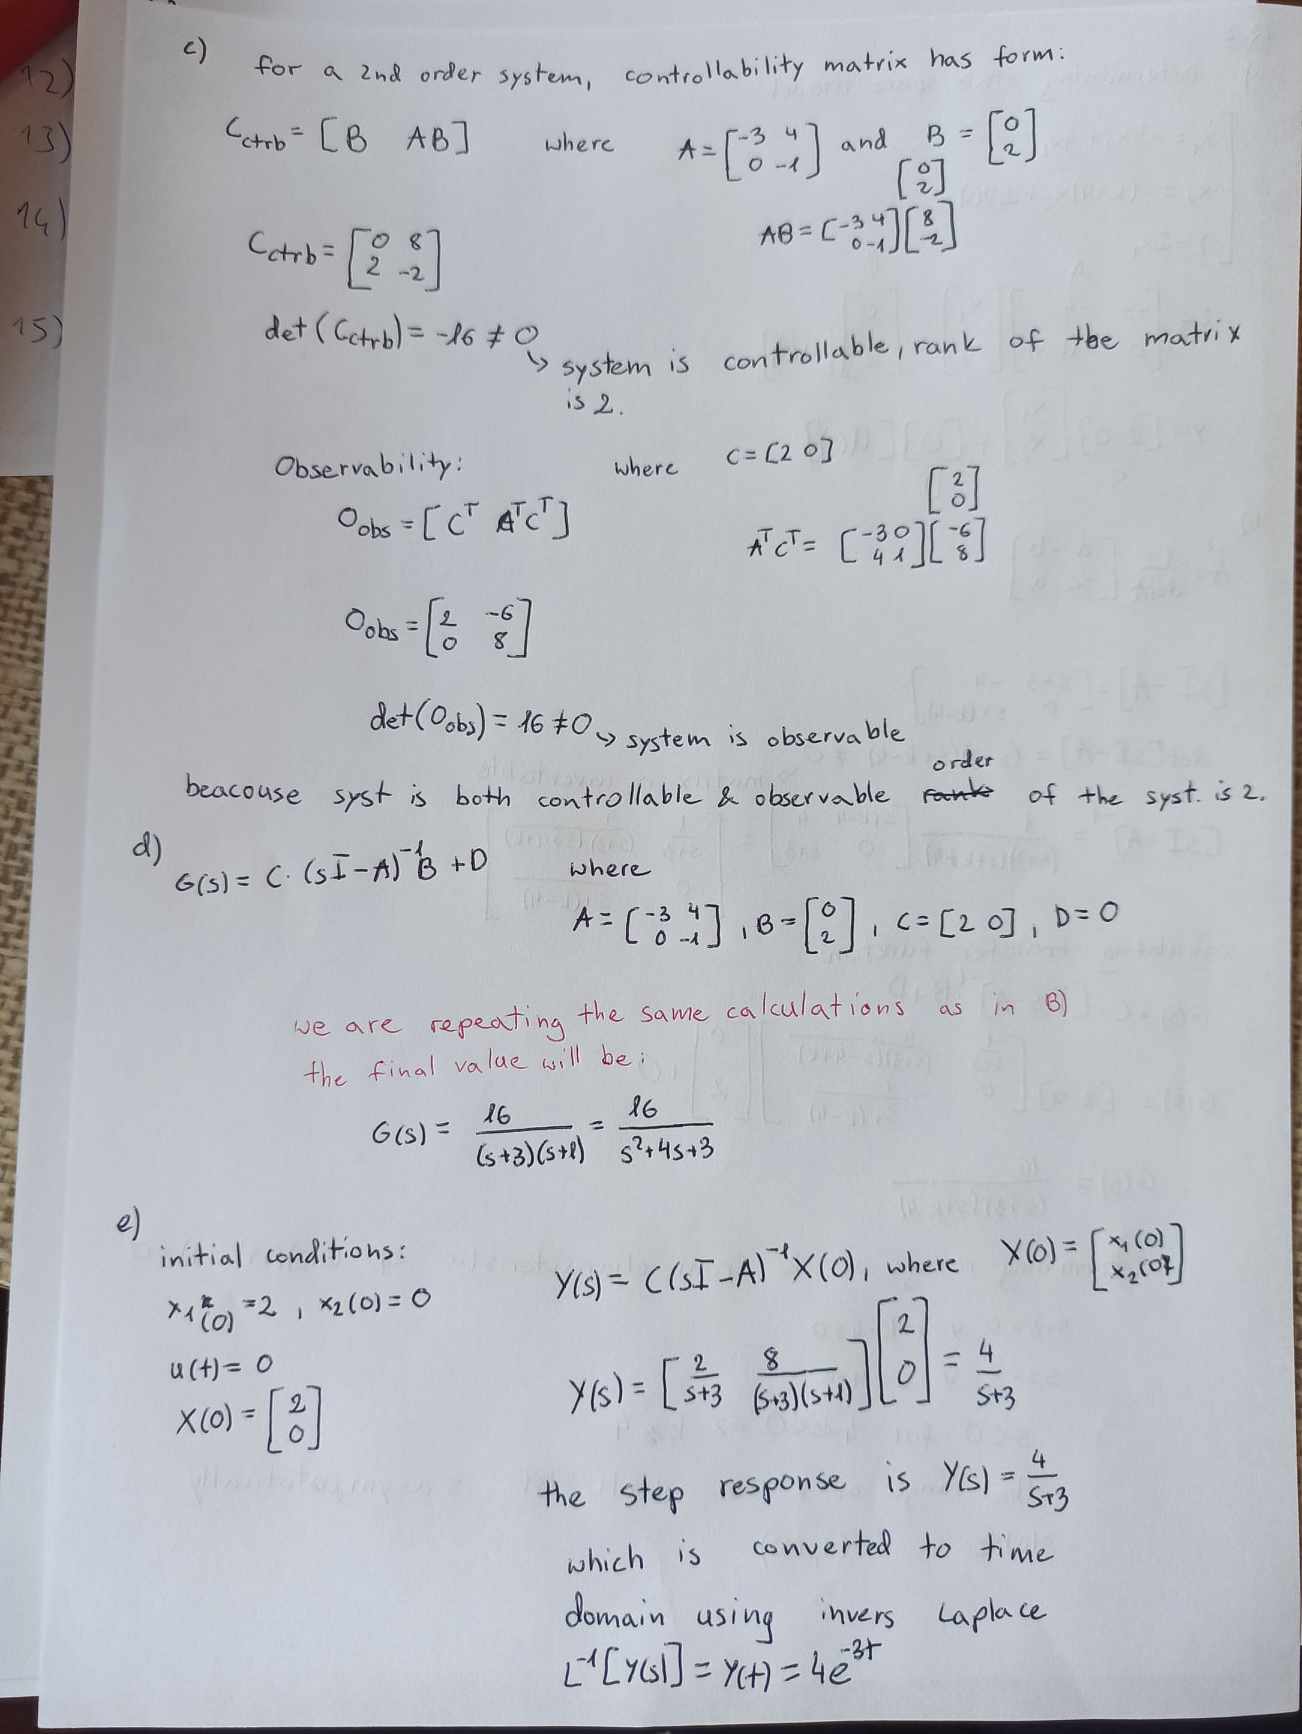 12)
13)
14)
15)
c) for a 2nd order system, controllability matrix has form:
C_ctrb = [B AB] where A = [-3 4; 0 -1] and B = [0; 2]
[0; 2]
C_ctrb = [0 8; 2 -2] AB = [-3 4; 0 -1] [8; -2]
det(C_ctrb) = -16 ≠ 0
↳ system is controllable, rank of the matrix
is 2.
Observability: where C = [2 0]
[2; 0]
O_obs = [C^T A^T C^T] A^T C^T = [-3 0; 4 1] [-6; 8]
O_obs = [2 -6; 0 8]
det(O_obs) = 16 ≠ 0 ↳ system is observable
order
beacouse syst is both controllable & observable rank of the syst. is 2.
d) G(s) = C·(sI-A)^-1 B + D where
A = [-3 4; 0 -1], B = [0; 2], C = [2 0], D = 0
we are repeating the same calculations as in B)
the final value will be:
G(s) = 16/((s+3)(s+1)) = 16/(s²+4s+3)
e) initial conditions: Y(s) = C(sI-A)^-1 X(0), where X(0) = [x₁(0); x₂(0)]
x₁(0) = 2, x₂(0) = 0
u(t) = 0
X(0) = [2; 0]
Y(s) = [2/(s+3) 8/((s+3)(s+1))] [2; 0] = 4/(s+3)
the step response is Y(s) = 4/(s+3)
which is converted to time
domain using invers Laplace
L^-1[Y(s)] = y(t) = 4e^-3t